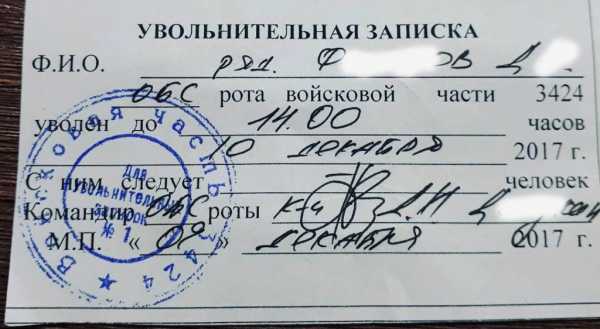 УВОЛЬНИТЕЛЬНАЯ ЗАПИСКА
Ф.И.О. ряд.
ОБС рота войсковой части 3424
уволен до 14.00 часов
10 декабря 2017 г.
С ним следует человек
Командир ОБС роты к-н
М.П. « 09 » декабря 2017 г.
Войсковая часть 3424
Для увольнительных записок № 1